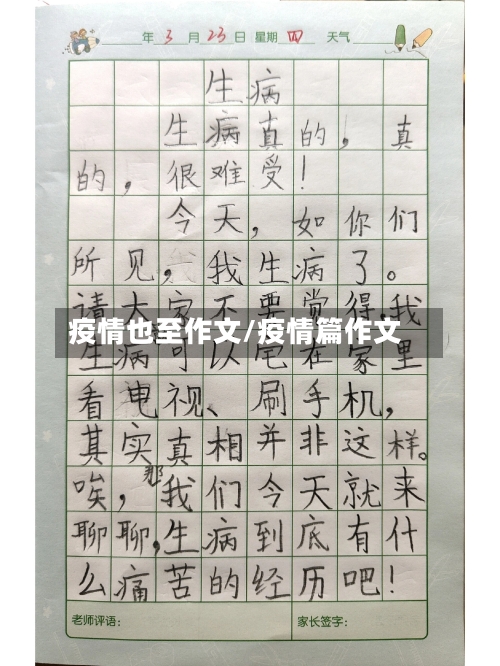 年3月23日 星期四 天气
生病
生病真的，真
的，很难受！
今天，如你们
所见，我生病了。
请大家不要觉得，我
疫情也至作文/疫情篇作文
生病可以宅在家里
看电视、刷手机，
其实真相并非这样。
唉，那我们今天就来
聊聊，生病到底有什
么痛苦的经历吧！
老师评语： 家长签字：